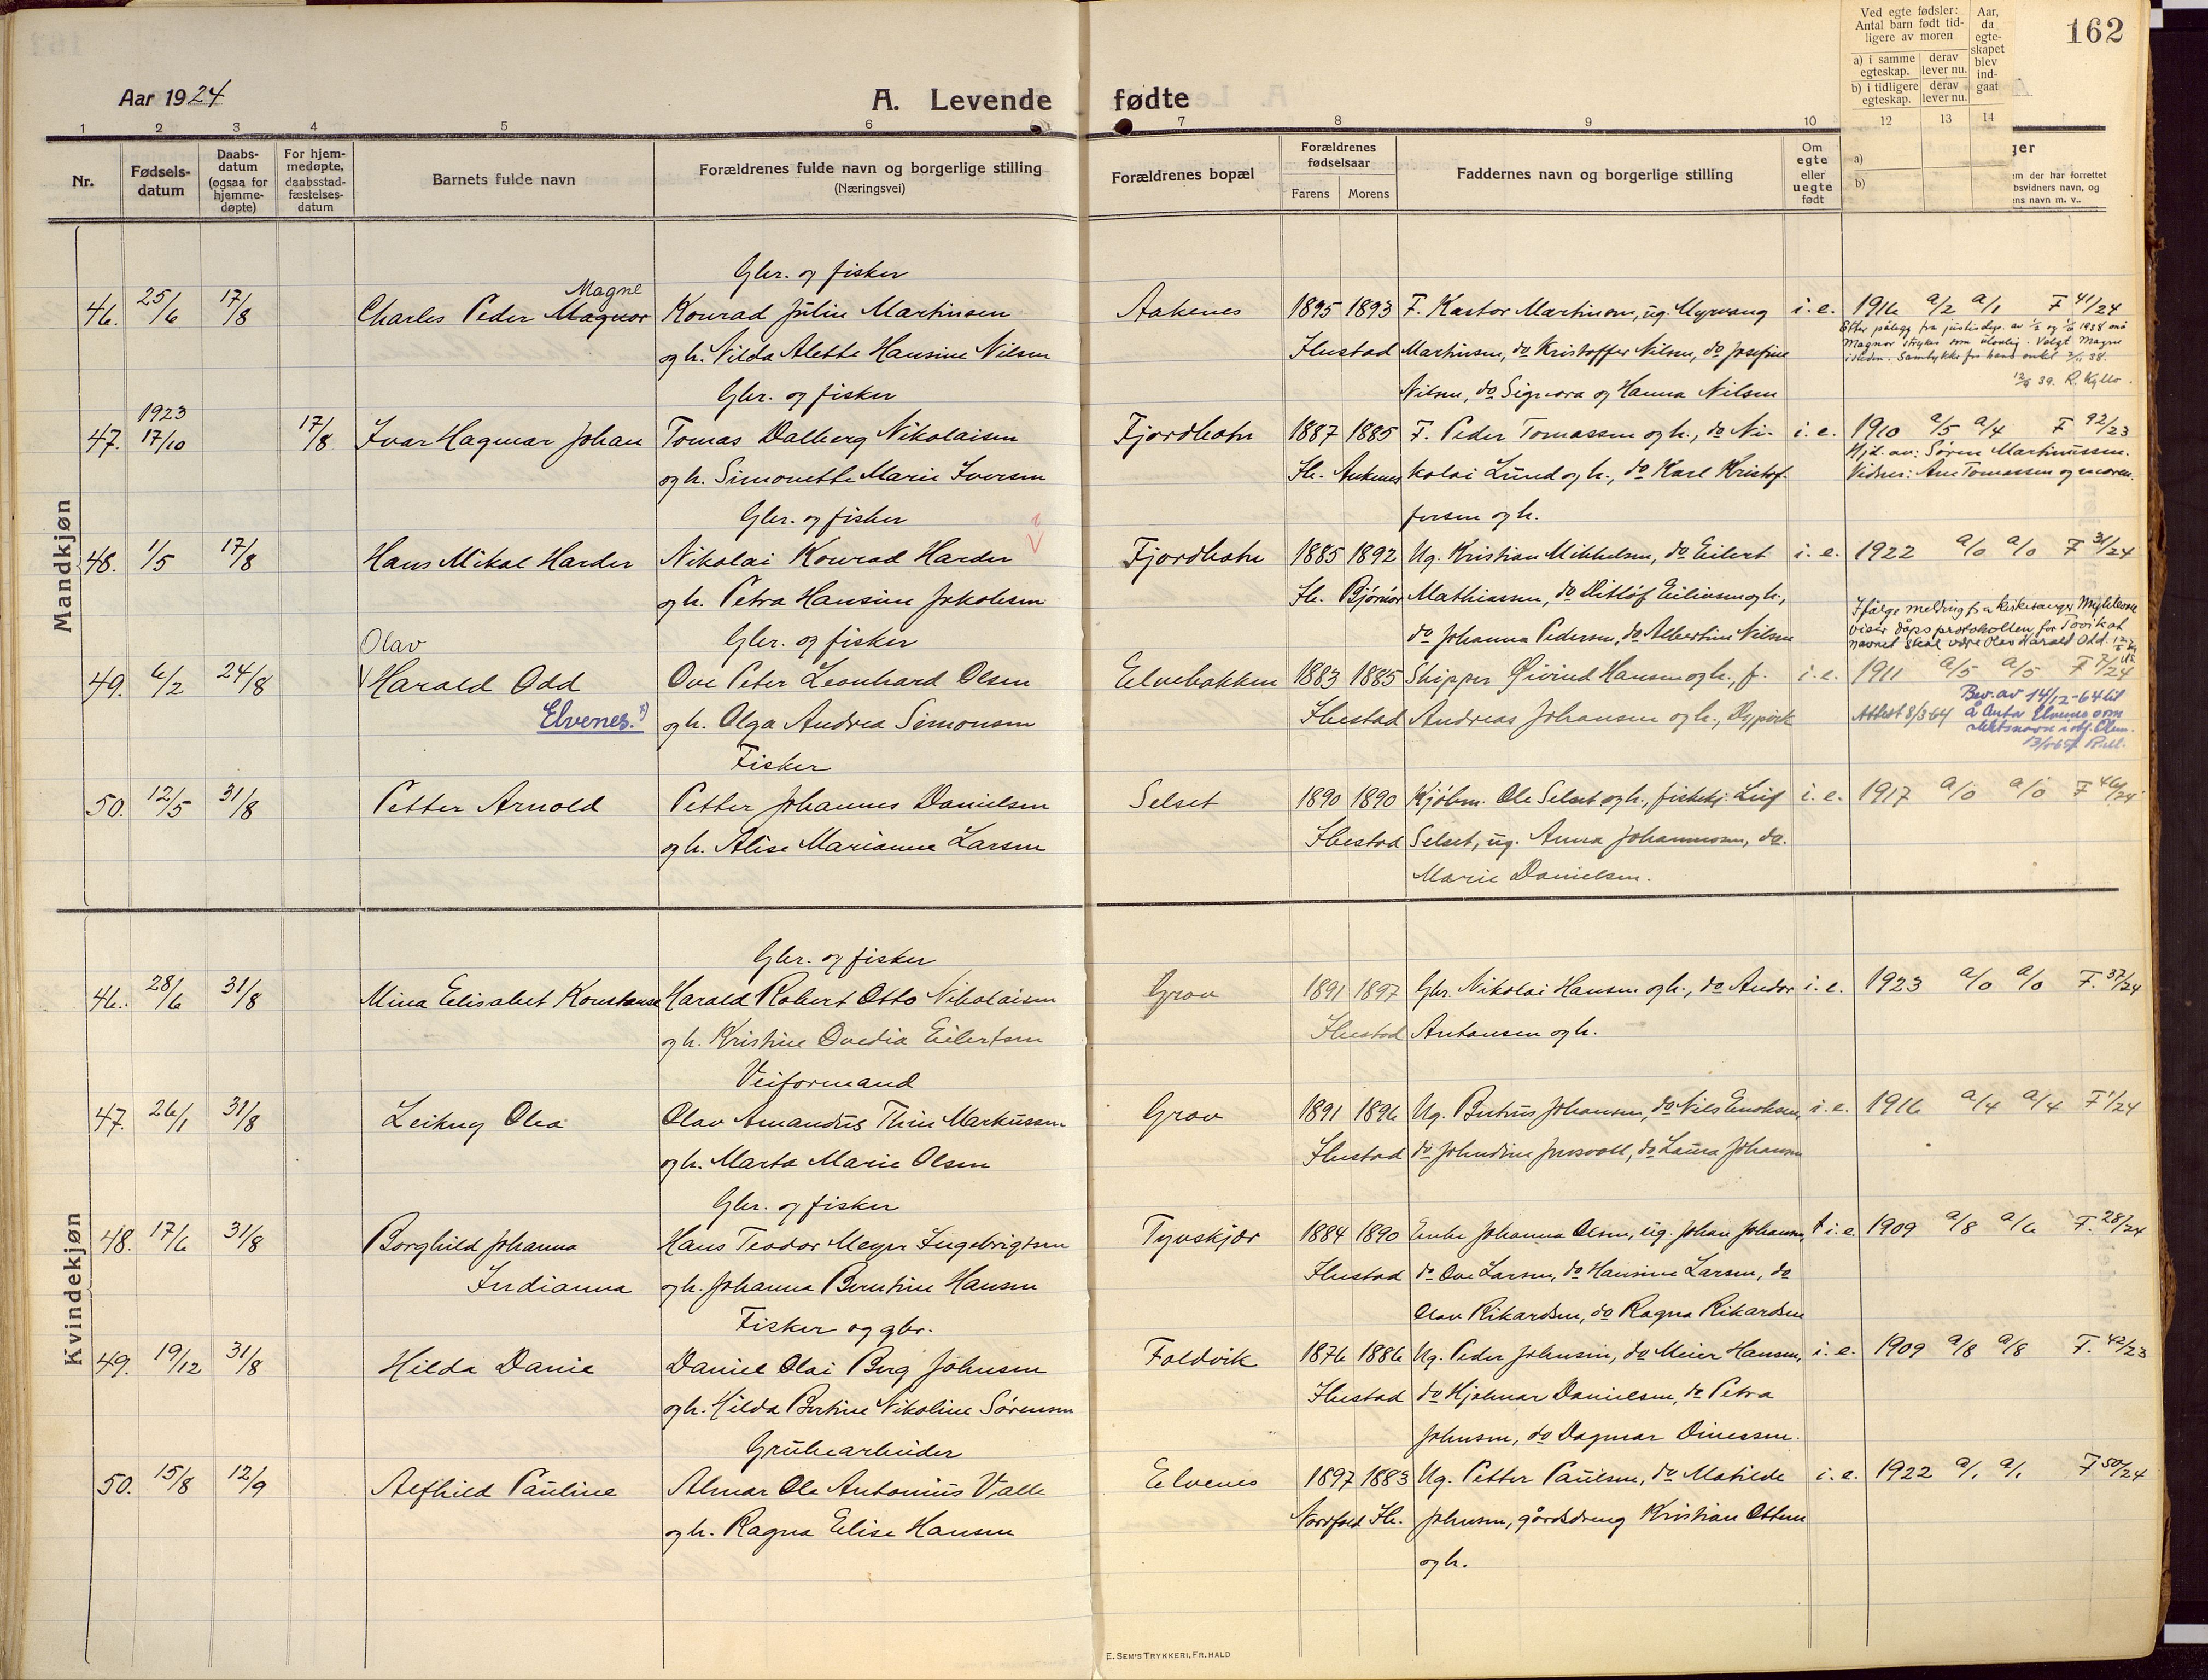 162
Aar 1924
A. Levende fødte
Ved egte fødsler:
Antal barn født tid-
ligere av moren
a) i samme egteskap.
derav lever nu.
b) i tidligere egteskap.
derav lever nu.
Aar, da egte-skapet blev ind-gaat
1 2 3 4 5 6 7 8 9 10 12 13 14
Nr.
Fødsels-datum
Daabs-datum (ogsaa for hjemme-døpte)
For hjem-medøpte, daabsstad-fæstelses-datum
Barnets fulde navn
Forældrenes fulde navn og borgerlige stilling
(Næringsvei)
Forældrenes bopæl
Forældrenes fødselsaar
Farens Morens
Faddernes navn og borgerlige stilling
Om egte eller uegte født
a)
b)
ger
em der har forrettet
bsvidners navn, og
ens navn m. v..
Mandkjøn
Gbr. og fisker
Magne
46. 25/6 17/8 Charles Peder Magnor Konrad Julin Martinsen Aakenes 1895 1893 F. Kastor Martinsen, ug. Myrvang i. e. 1916 a/2 a/1 F 41/24
og h. Nilda Alette Hansine Nilsen Ibestad Martinsen, do Kristoffer Nilsen, do Josefine
Nilsen, do Signora og Hanna Nilsen
Efter pålegg fra justisdep. av
Magnor strykes som ulovlig. Valgt Magne
isteden. Samtykke fra hans onkel
R. Kyllo.
Gbr. og fisker
1923
47. 17/10 17/8 Ivar Hagmar Johan Tomas Dalberg Nikolaisen Fjordbotn 1887 1885 F. Peder Tomassen og h., do Ni- i. e. 1910 a/5 a/4 F 92/23
og h. Simonette Marie Iversen Ib. Ankenes kolai Lund og h., do Karl Kristof-
fersen og h.
Hjd. av: Søren Martinussen.
Vidner: Ane Tomassen og moren.
Gbr. og fisker
48. 1/5 17/8 Hans Mikal Harder Nikolai Konrad Harder Fjordbotn 1885 1892 Ug. Kristian Mikkelsen, do Eilert i. e. 1922 a/0 a/0 F 31/24
og h. Petra Hansine Jakobsen Ib. Bjørnør Mathiassen, do Ditløf Eilivsen og h.,
do Johanna Pedersen, do Albertine Nilsen
Ifølge melding fra kirkesanger
viser dåpsprotokollen for
navnet skal være Olav Harald Odd.
Olav Gbr. og fisker
49. 6/2 24/8 Harald Odd Ove Peter Leonhard Olsen Elvebakken 1883 1885 Skipper Øivind Hansen og h., f. i. e. 1911 a/5 a/5 F 7/24
Elvenes. x) og h. Olga Andrea Simonsen Ibestad Andreas Johansen og h., Dypvik
Attest 8/3-64
Bev. av 14/12-64 til
å anta Elvenes som
slektsnavn i st. f. Olsen.
Fisker
50. 12/5 31/8 Petter Arnold Petter Johannes Danielsen Selset 1890 1890 Kjøbm. Ole Selset og h., fiskekj. Leif i. e. 1917 a/0 a/0 F 46/24
og h. Alise Marianne Larsen Ibestad Selset, ug. Anna Johannesen, do.
Marie Danielsen.
Kvindekjøn
Gbr. og fisker
46. 28/6 31/8 Mina Elisabet Konstanse Harald Robert Otto Nikolaisen Grov 1891 1897 Gbr. Nikolai Hansen og h., do Andor i. e. 1923 a/0 a/0 F. 37/24
og h. Kristine Ovedia Eilertsen Ibestad Antonsen og h.
Veiformand
47. 26/1 31/8 Leikny Olea Olav Amandus Thin Markussen Grov 1891 1896 Ug. Bertius Johansen, do Nils Enoksen, i. e. 1916 a/4 a/4 F 1/24
og h. Marta Marie Olsen Ibestad do Johndine, do Laura Johansen
Gbr. og fisker
48. 17/6 31/8 Borghild Johanna Hans Teodor Meyer Ingebrigtsen Tyvskjær 1884 1890 Enke Johanna Olsen, ug. Johan Johansen, i. e. 1909 a/8 a/6 F. 28/24
Indianna og h. Johanna Berntine Hansen Ibestad do Ove Larsen, do Hansine Larsen, do
Olav Rikardsen, do Ragna Rikardsen
Fisker og gbr.
49. 19/12 31/8 Hilda Danie Daniel Olai Berg Johnsen Foldvik 1876 1886 Ug. Peder Johnsen, do Meier Hansen, i. e. 1909 a/8 a/8 F. 42/23
og h. Hilda Bertine Nikoline Sørensen Ibestad do Hjalmar Danielsen, do Petra
Johnsen, do Dagmar Dinessen.
Grubearbeider
50. 15/8 12/9 Alfhild Pauline Almar Ole Antonius Valle Elvenes 1897 1883 Ug. Petter Paulsen, do Matilde i. e. 1922 a/1 a/1 F 50/24
og h. Ragna Elise Hansen Nordfold Ib. Johnsen, gårdsdreng Kristian Ottesen
og h.
E. SEM'S TRYKKERI, FR.HALD